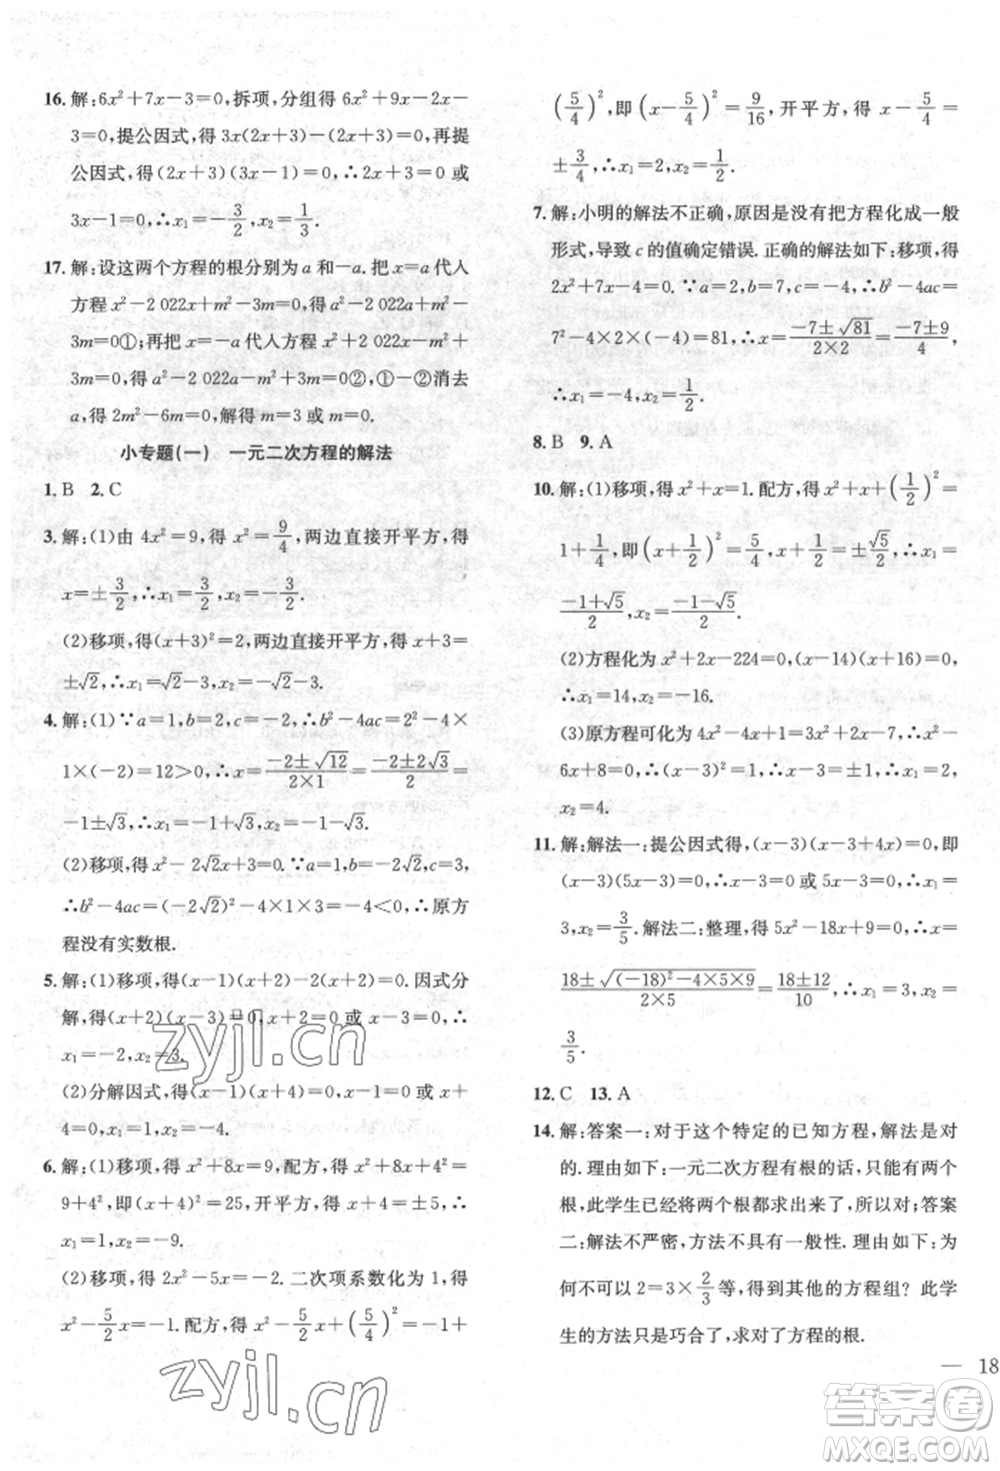 16. 解:6x²+7x-3=0,拆项,分组得 6x²+9x-2x-
3=0,提公因式,得 3x(2x+3)-(2x+3)=0,再提
公因式,得 (2x+3)(3x-1)=0,∴2x+3=0 或
3x-1=0,∴x₁=-3/2,x₂=1/3.
17. 解:设这两个方程的根分别为 a 和-a. 把 x=a 代人
方程 x²-2 022x+m²-3m=0,得 a²-2 022a+m²-
3m=0①;再把 x=-a 代人方程 x²+2 022x-m²+
3m=0,得 a²-2 022a-m²+3m=0②,①-②消去
a,得 2m²-6m=0,解得 m=3 或 m=0.
小专题(一) 一元二次方程的解法
1. B 2. C
3. 解:(1)由 4x²=9,得 x²=9/4,两边直接开平方,得
x=±3/2,∴x₁=3/2,x₂=-3/2.
(2)移项,得(x+3)²=2,两边直接开平方,得 x+3=
±√2,∴x₁=√2-3,x₂=-√2-3.
4. 解:(1)∵a=1,b=2,c=-2,∴b²-4ac=2²-4×
1×(-2)=12>0,∴x=(-2±√12)/(2×1)=(-2±2√3)/2=
-1±√3,∴x₁=-1+√3,x₂=-1-√3.
(2)移项,得 x²-2√2x+3=0. ∵a=1,b=-2√2,c=3,
∴b²-4ac=(-2√2)²-4×1×3=-4<0,∴原方
程没有实数根.
5. 解:(1)移项,得(x-1)(x+2)-2(x+2)=0. 因式分
解,得(x+2)(x-3)=0,∴x+2=0 或 x-3=0,∴
x₁=-2,x₂=3.
(2)分解因式,得(x-1)(x+4)=0,∴x-1=0 或 x+
4=0,∴x₁=1,x₂=-4.
6. 解:(1)移项,得 x²+8x=9,配方,得 x²+8x+4²=
9+4²,即(x+4)²=25,开平方,得 x+4=±5,∴
x₁=1,x₂=-9.
(2)移项,得 2x²-5x=-2. 二次项系数化为 1,得
x²-5/2x=-1. 配方,得 x²-5/2x+(5/4)²=-1+
(5/4)²,即 (x-5/4)²=9/16,开平方,得 x-5/4=
±3/4,∴x₁=2,x₂=1/2.
7. 解:小明的解法不正确,原因是没有把方程化成一般
形式,导致 c 的值确定错误. 正确的解法如下:移项,得
2x²+7x-4=0. ∵a=2,b=7,c=-4,∴b²-4ac=
7²-4×2×(-4)=81,∴x=(-7±√81)/(2×2)=(-7±9)/4,
∴x₁=-4,x₂=1/2.
8. B 9. A
10. 解:(1)移项,得 x²+x=1. 配方,得 x²+x+(1/2)²=
1+1/4,即(x+1/2)²=5/4,∴x+1/2=±√5/2,∴x₁=
(-1+√5)/2,x₂=(-1-√5)/2.
(2)方程化为 x²+2x-224=0,(x-14)(x+16)=0,
∴x₁=14,x₂=-16.
(3)原方程可化为 4x²-4x+1=3x²+2x-7,∴x²-
6x+8=0,∴(x-3)²=1,∴x-3=±1,∴x₁=2,
x₂=4.
11. 解:解法一:提公因式得,(x-3)(x-3+4x)=0,即
(x-3)(5x-3)=0,∴x-3=0 或 5x-3=0,∴x₁
=3,x₂=3/5. 解法二:整理,得 5x²-18x+9=0,∴x=
(18±√((-18)²-4×5×9))/(2×5)=(18±12)/10,∴x₁=3,x₂=
3/5.
12. C 13. A
14. 解:答案一:对于这个特定的已知方程,解法是对
的. 理由如下:一元二次方程有根的话,只能有两个
根,此学生已经将两个根都求出来了,所以对;答案
二:解法不严密,方法不具有一般性. 理由如下:为
何不可以 2=3×2/3等,得到其他的方程组? 此学
生的方法只是巧合了,求对了方程的根.
— 18
zyjl.cn
zyjl.cn
答案卷
MXQE.COM